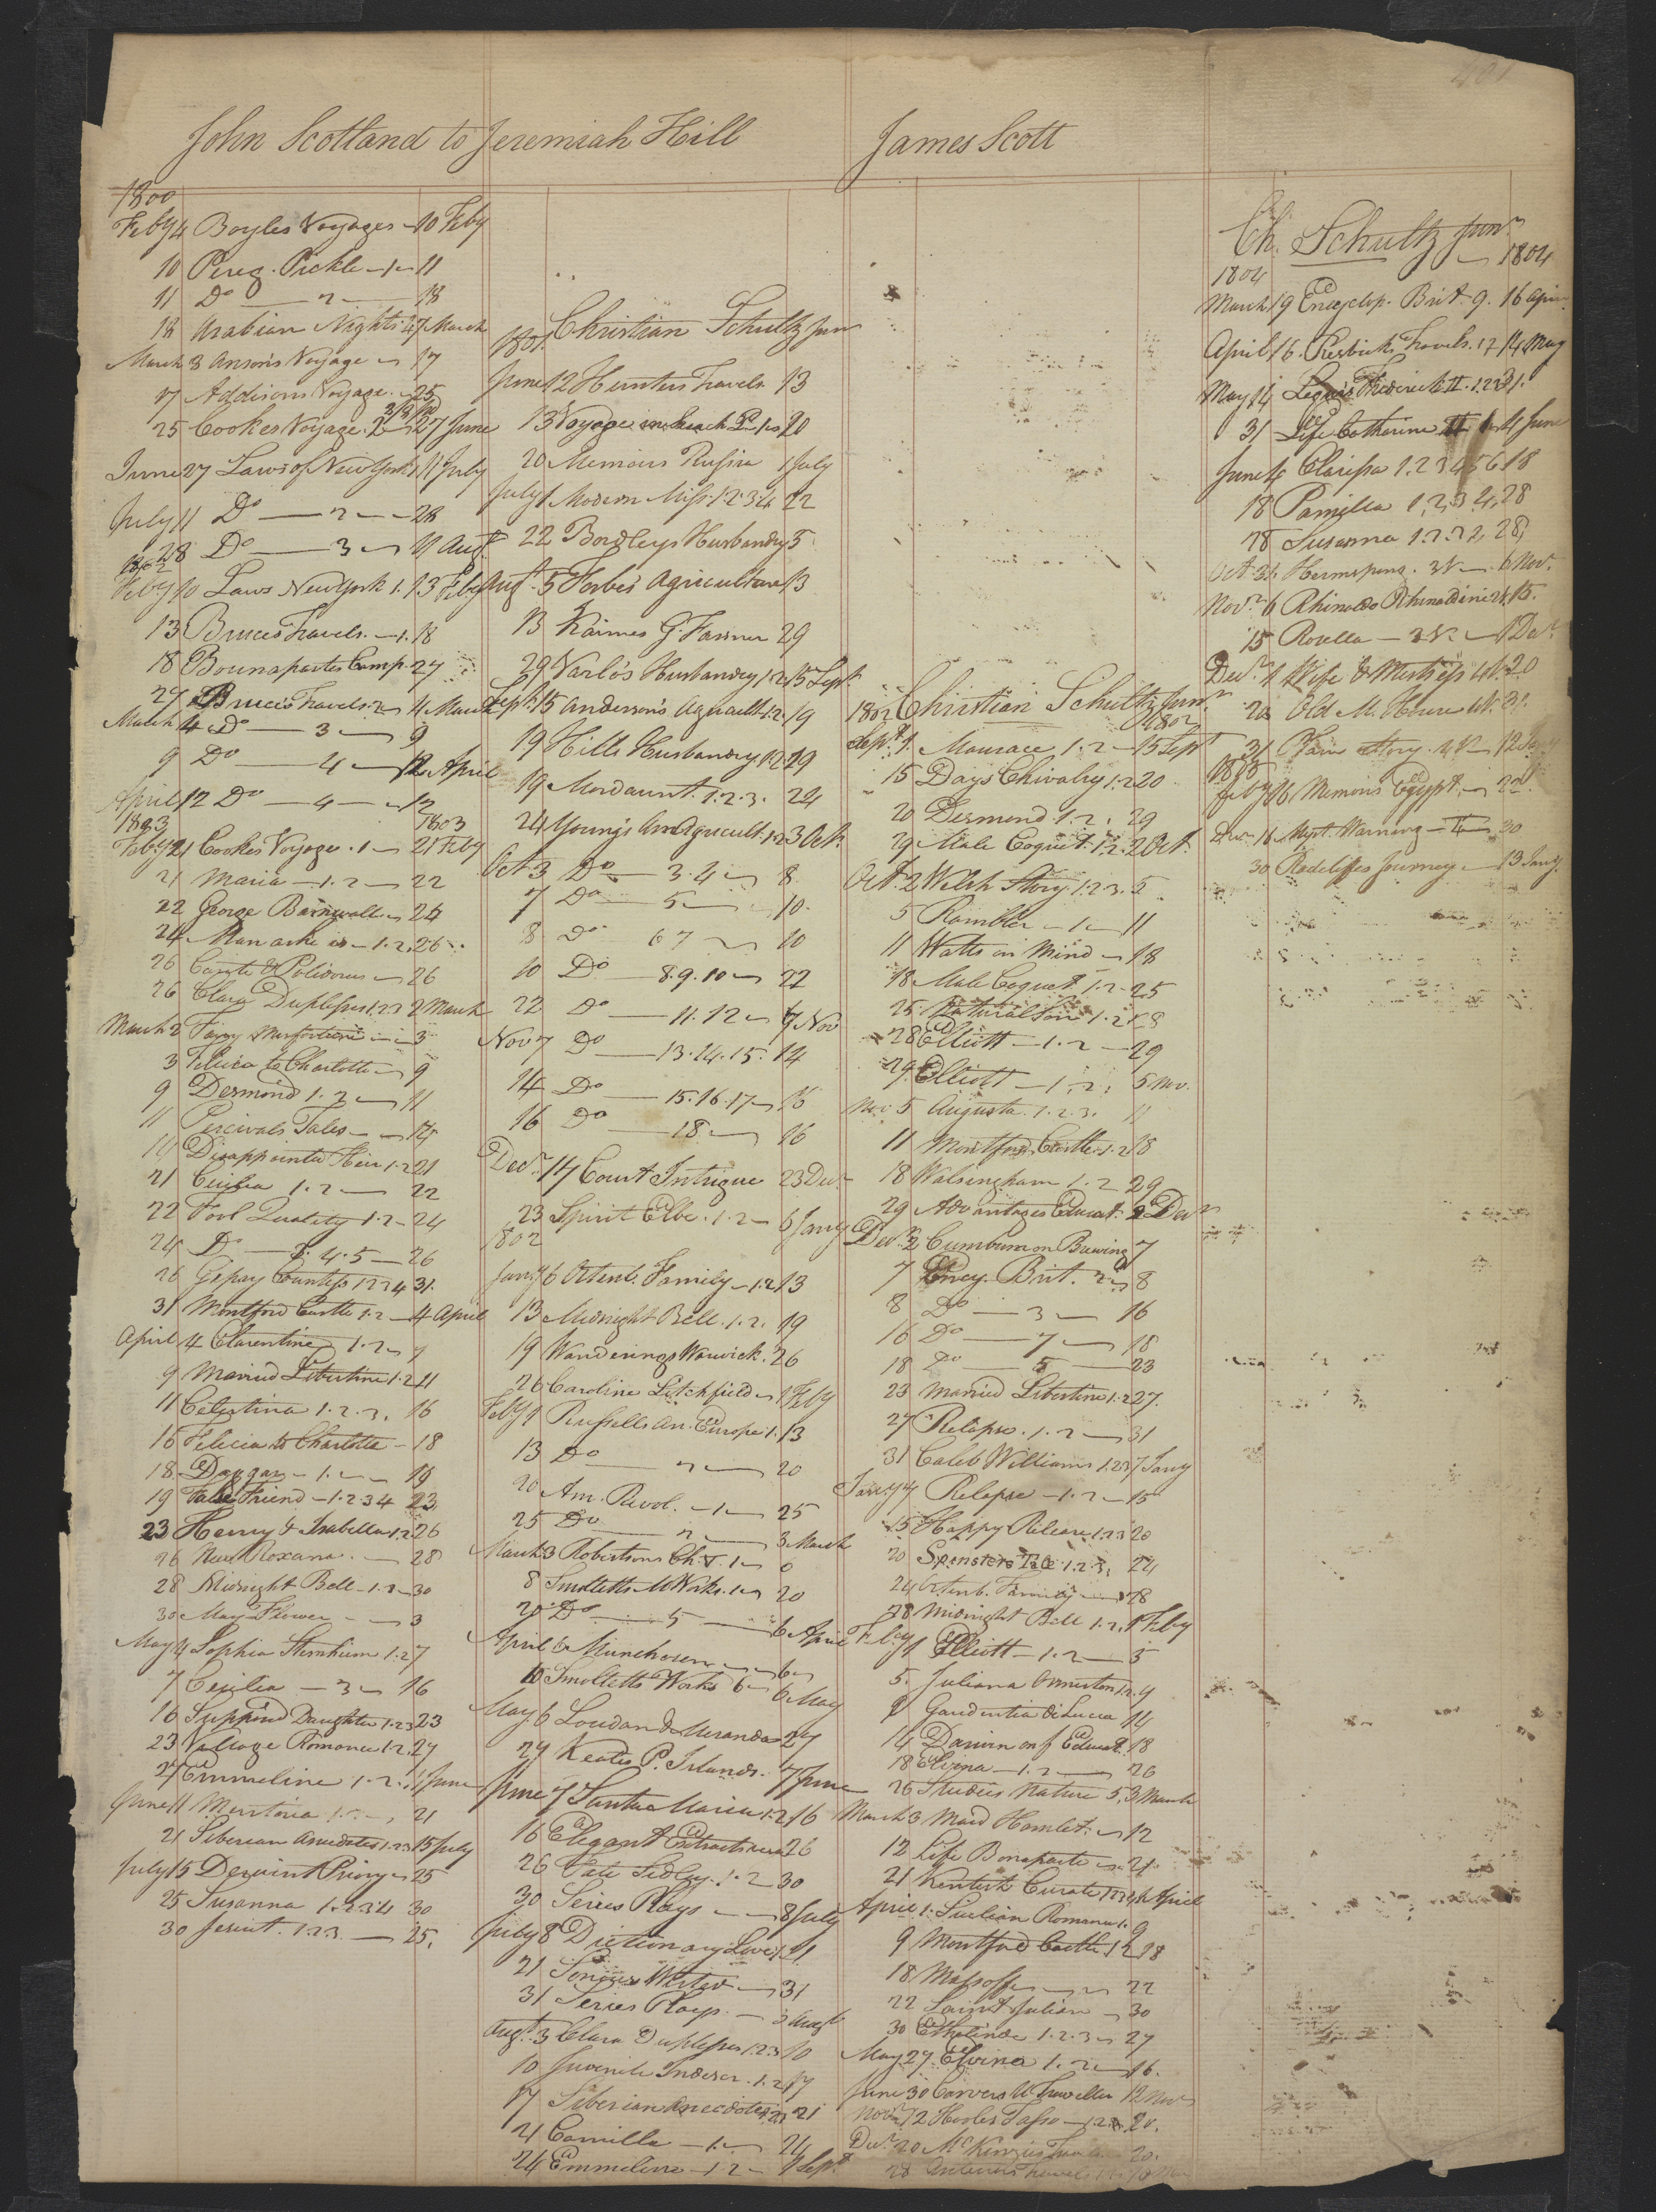 401
John Scotland to Jeremiah Hill
1800
Feby 4 Boyles Voyages - 10 Feby
10 Pereg. Pickle - 1 - 11
11 Do - 2 - 18
18 Arabian Nights 4 7 March
March 3 Ansons Voyage - 17
17 Addisons Voyage - 25
25 Cookes Voyage. 2 - 27 June
June 27 Laws of New York 1 11 July
July 11 Do - 2 - 28
28 Do - 3 - 11 Augt
1802
Feby 10 Laws New York 1. 13 Feby
13 Bruces Travels. - 1. 18
18 Bounapartes Camp. 27
27 Bruces Travels 2 - 4 March
March 4 Do - 3 - 9
9 Do - 4 - 12 April
April 12 Do - 4 - 17
1803 1803
Feby 21 Cookes Voyage. 1 - 21 Feby
21 Maria - 1. 2 - 22
22 George Barnwell - 24
24 Man as he is - 1. 2. 26
26 Comte & Polidorus - 26
26 Clara Duplessis 1.2.3 2 March
March 2 Fanny - 3
3 Felicia to Charlotte - 9
9 Desmond 1. 2 - 11
11 Percivals Tales - 14
14 Disappointed Heir 1.2 21
21 Cecilia 1. 2 - 22
22 Fool Quality 1. 2 - 24
24 Do - 3. 4. 5 - 26
26 Gipsey Countess 1 2 3 4 31.
31 Montford Castle 1. 2 - 4 April
April 4 Clarentine 1. 2 - 9
9 Married Libertine 1. 2 11
11 Celestina 1. 2. 3. 16
16 Felicia to Charlotte - 18
18 - 1. - 19
19 False Friend - 1. 2 3 4 23
23 Henry & Isabella 1.2 26
26 New Roxana. - 28
28 Midnight Bell - 1. 2 - 30
30 May Flower - 3
May 4 Sophia Sternheim 1. 2 7
7 Cecilia - 3 - 16
16 Supposed Daughter 1.2.3 23
23 Village Romance 1. 2. 27
27 Emmeline 1. 2. 11 June
June 11 21
21 Siberian Anecdotes 1.2.3 15 July
July 15 Derwent Priory - 25
25 Susanna 1. 2 3 4 30
30 Jesuit. 1 2 3. - 25.
Christian Schultz Jun
1801.
June 12 Hunters Travels 13
13 Voyage in Search P. 1 - 20
20 Memoirs Russia 1 July
July 1 Modern Miss. 1. 2. 3 4 22
22 Bordleys Husbandry 5
Augt. 5 Forbes Agriculture 13
13 Kaimes G. Farmer 29
29 Varlo's Husbandry 1. 2. 15 Sept.
Sept. 15 Anderson's Agricult. 1. 2. 19
19 Hills Husbandry 1. 2. 19
19 Mordaunt. 1. 2. 3. 24
24 Young's Ann Agricult. 1. 2 3 Oct.
Oct 3 Do - 3. 4 - 8
7 Do - 5 - 10.
8 Do 6 7 - 10
10 Do - 8. 9. 10 - 22
22 Do - 11. 12 - 7 Nov
Nov 7 Do - 13. 14. 15. 14
14 Do - 15. 16. 17 - 16
16 Do - 18 - 16
Decr. 14 Court Intrigue 23 Decr
23 Spirit Elbe. 1. 2 - 6 Jany
1802
Jany 6 Ortenb. Family - 1. 2 13
13 Midnight Bell. 1. 2. 19
19 Wanderings Warwick. 26
26 Caroline Litchfield - 1 Feby
Feby 1 Russells An. Europe 1. 13
13 Do - 2 - 20
20 Am. Revol. - 1 - 25
25 Do - 2 - 3 March
March 3 Robertsons Ch. V. 1 - 8
8 Smolletts M Works. 1 - 20
20 Do - 5 - 6 April
April 6 Munchosen - 6
10 Smolletts Works 6 - 6 May
May 6 Loudan & Miranda 27
27 Keates P. Islands. 7 June
June 7 Santa Maria 1. 2 16
16 Elegant Extracts 26
26 Fate Sedley. 1. 2 30
30 Series Plays - 8 July
July 8 Dictionary Love 1 21
21 - 31
31 Series Plays - 3 Augt
Augt. 3 Clara Duplessis 1 2 3 10
10 Juvenile Indiscr. 1. 2 17
17 Siberian Anecdotes 21
21 Camilla - 1. - 24
24 Emmeline - 1. 2 - 1 Sept
James Scott
Christian Schultz Junr
1802 1802
Sept. 1 Mourace 1. 2 - 15 Sept
15 Days Chivalry 1. 2 20
20 Desmond 1. 2. 29
29 Male Coquet. 1. 2. 2 Oct.
Oct. 2 Welsh Story. 1. 2. 3. 5
5 Rambler - 1 - 11
11 Watts on Mind - 18
18 Male Coquet. 1. 2 - 25
25 Natural Son 1. 2 28
28 Elliott - 1. 2 - 29
29 Elliott - 1. 2. 5 Nov.
Nov. 5 Augusta. 1. 2. 3. 11
11 Montford Castle. 1. 2 18
18 Walsingham 1. 2 29
29 Advantages Educat. 2 Decr
Decr. 2 Cumbum on Brewing 7
7 Ency. Brit. 2 - 8
8 Do - 3 - 16
16 Do - 7 - 18
18 Do - 5 - 23
23 Married Libertine 1. 2 27.
27 Relapse. 1. 2 - 31
31 Caleb Williams 1.2.3 7 Jany
Jany 7 Relapse - 1. 2 - 15
15 Happy Release 1.2.3 20
20 Spinsters Tale 1. 2. 3. 24
24 Ortenb. Family - 28
28 Midnight Bell 1. 2. 1 Feby
Feby 1 Elliott - 1. 2 - 5
5. Juliana Ormeston 1. 2. 9
9 Gaudentia di Lucca 14
14 Darwin on f Educat. 18
18 Elvina - 1. 2 - 26
26 Studies Nature 5. 3 March
March 3 Maid Hamlet. - 12
12 Life Bonaparte - 21.
21 Kentish Curate 1 2 3 4 1 April
April 1. Sicilian Romance 1. 9
9 Montford Castle 1 2 18
18 - 22
22 Saint Julian - 30
30 Ethelinde 1. 2. 3 - 27
May 27 Elvina 1. 2 - 16.
June 30 Carvers U Traveller 12 Nov
Novr 12 Hooles Tasso - 1. 2. 20.
Decr 20 McKenzies 20.
28 Travels
Ch. Schultz Junr
1804 - 1804
March 19 Encyclop. Brit. 9. 16 April
April 16. Travels. 17 14 May
May 14 Frederick II. 1.2.3 31.
31 Life Catherine II 1 - 4 June
June 4 Clarissa 1. 2 3 4 5 6 18
18 Pamella 1, 2, 3, 4, 28
28 Susanna 1. 2. 3 4. 28
Oct. 31. Hermsprong. 3 V - 6 Nov.
Novr 6 Rhinaldo Rhinaldini 2 V. 15.
15 Rosella - 2 V. - 1 Decr
Decr. 1 Wife & Mistress 4 V. 20
20 Old M. House 4 V. 31.
31 Plain Story. 4 V - 12 Jany
1805
Feby 16 Memoirs Egypt. - 22
Decr 16 Myst. Warning - 30
30 Radcliffes Journey - 13 Jany.